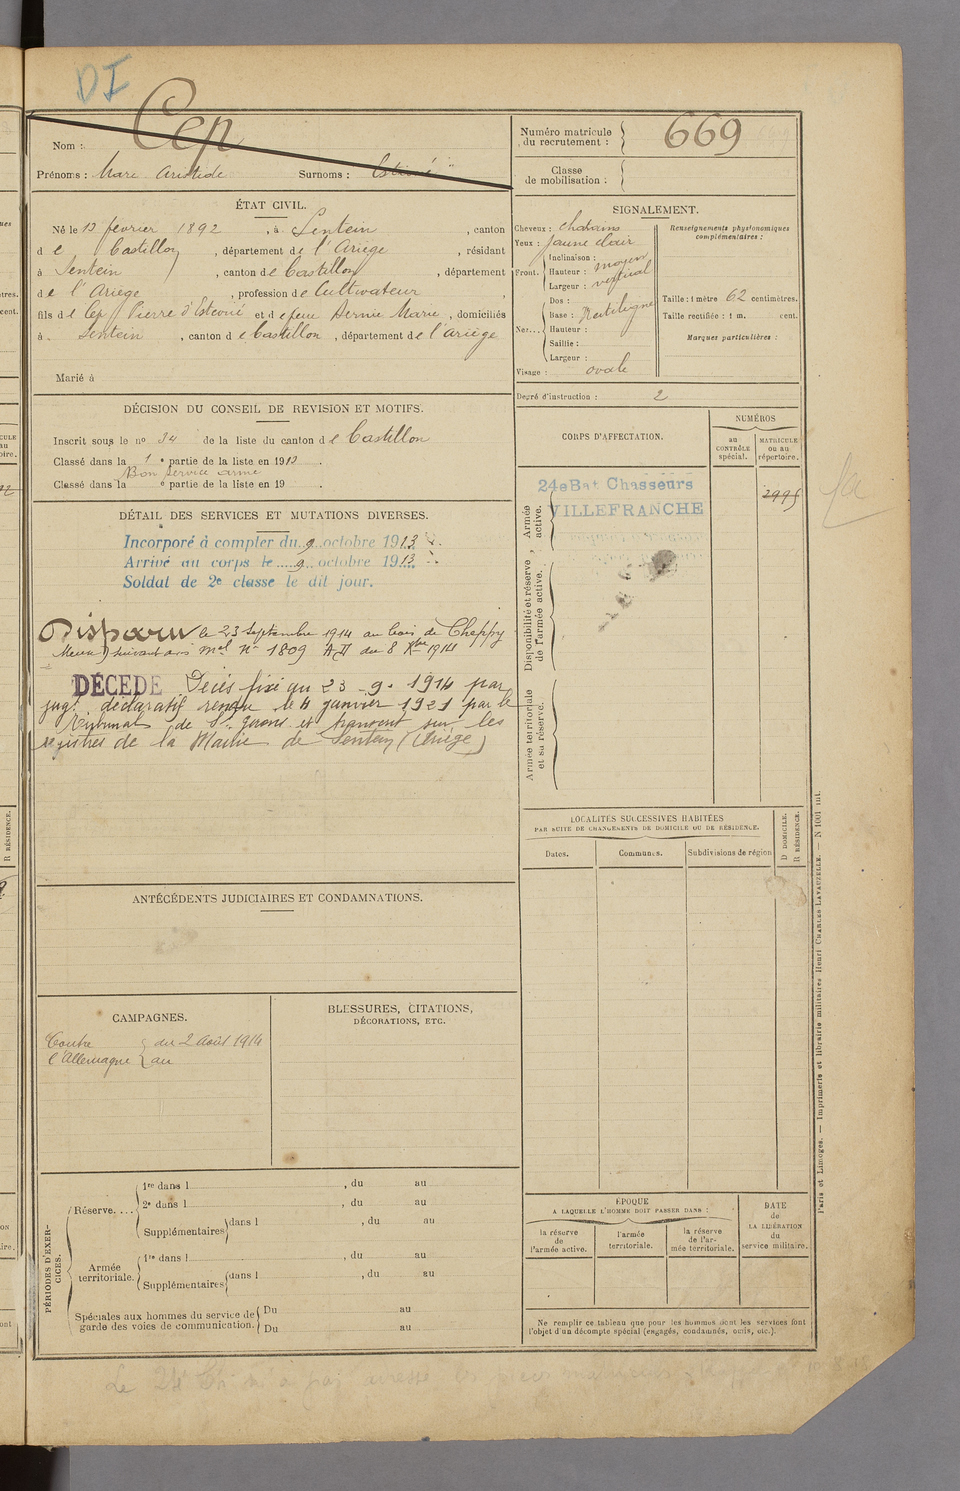 DI
Nom : Cep
Prénoms : Marc Aristide Surnoms :
Numéro matricule
du recrutement : 669
Classe
de mobilisation :
ÉTAT CIVIL.
Né le 13 février 1892, à Sentein, canton
de Castillon, département de l'Ariège, résidant
à Sentein, canton de Castillon, département
de l'Ariège, profession de Cultivateur,
fils de Cep Pierre d'Estevié et de feue Marie, domiciliés
à Sentein, canton de Castillon, département de l'Ariège
Marié à
SIGNALEMENT.
Cheveux : chatains
Yeux : jaune clair
Front. Inclinaison :
Hauteur : moyen
Largeur : vertical
Nez... Dos :
Base : Rectiligne
Hauteur :
Saillie :
Largeur :
Visage : ovale
Renseignements physionomiques
complémentaires :
Taille : 1 mètre 62 centimètres.
Taille rectifiée : 1 m. cent.
Marques particulières :
Degré d'instruction : 2
DÉCISION DU CONSEIL DE REVISION ET MOTIFS.
Inscrit sous le no 34 de la liste du canton de Castillon
Classé dans la 1e partie de la liste en 1913.
Bon service armé
Classé dans la e partie de la liste en 19 .
DÉTAIL DES SERVICES ET MUTATIONS DIVERSES.
Incorporé à compter du 9 octobre 1913
Arrivé au corps le 9 octobre 1913
Soldat de 2e classe le dit jour.
Disparu le 23 Septembre 1914 au bois de Cheppy
Meuse) suivant avis mel No 1809 AD du 8 Xbre 1914
DÉCÉDÉ Décès fixé au 23-9-1914 par
jugt déclaratif rendu le 4 janvier 1921 par le
Tribunal de St Girons et transcrit sur les
registres de la Mairie de Sentein (Ariège)
CORPS D'AFFECTATION.
NUMÉROS
au
CONTRÔLE
spécial.
MATRICULE
ou au
répertoire.
Armée
active.
24e Bat Chasseurs
VILLEFRANCHE
2995
Disponibilité et réserve
de l'armée active.
Armée territoriale
et sa réserve.
LOCALITÉS SUCCESSIVES HABITÉES
PAR SUITE DE CHANGEMENTS DE DOMICILE OU DE RÉSIDENCE.
Dates.
Communes.
Subdivisions de région
D DOMICILE.
R RÉSIDENCE.
ANTÉCÉDENTS JUDICIAIRES ET CONDAMNATIONS.
CAMPAGNES.
Contre
l'Allemagne { du 2 Août 1914
au
BLESSURES, CITATIONS,
DÉCORATIONS, ETC.
PÉRIODES D'EXER-
CICES.
Réserve.... 1re dans l , du au
2e dans l , du au
Supplémentaires dans l , du au
Armée
territoriale. 1re dans l , du au
Supplémentaires dans l , du au
Spéciales aux hommes du service de
garde des voies de communication. Du au
Du au
ÉPOQUE
A LAQUELLE L'HOMME DOIT PASSER DANS :
la réserve
de
l'armée active.
l'armée
territoriale.
la réserve
de l'ar-
mée territoriale.
DATE
de
LA LIBÉRATION
du
service militaire.
Ne remplir ce tableau que pour les hommes dont les services font
l'objet d'un décompte spécial (engagés, condamnés, omis, etc.).
Paris et Limoges. — Imprimerie et librairie militaires Henri CHARLES-LAVAUZELLE. — N 1001 int.